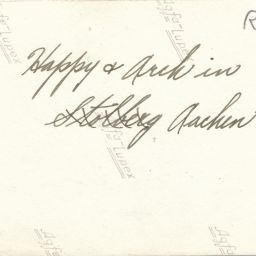 R
Happy & Arch in
Stolberg Aachen
Agfa Lupex
Agfa Lupex
Agfa Lupex
Agfa
Agfa